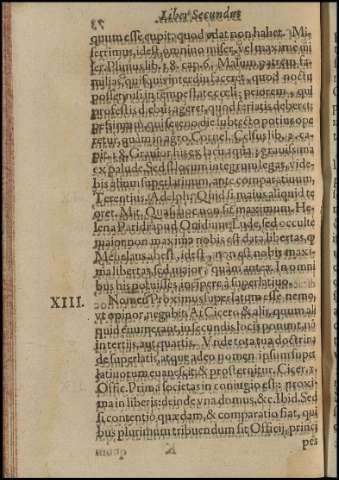 73
Liber Secundus
quum esse cupit: quod vdat non habet. Mi-
serrimus, idest omnino miser, vel maxime mi
ser. Plinius lib. 18. cap. 6. Malum patrem fa-
milias, quisquis interdiu faceret, quod noctu
posset, nisi in tempestate cœli: peiorem, qui
profestis diebus ageret, quod feriatis deberet:
pessimum, qui sereno die sub tecto potius ope
retur, quàm in agro. Cornel. Celsus lib. 2. ca-
pit. 18. Grauior his ex lacu aqua; grauissima
ex palude. Sed si locum integrum legas, vide-
bis alium superlatiuum, ante comparatiuum,
Terentius. Adelph. Quid si maius aliquid te
oret. Mit. Quasi hoc non sit maximum. He-
lena Paridi apud Ouidium, Lude, sed occulte
maior non maxima nobis est data libertas, q̃
Menelaus abest, idest, non est nobis maxi-
ma libertas, sed maior, quam antea. In omni
bus his potuisses incipere à superlatiuo.
XIII. Nomen Proximus superlatum esse, nemo,
vt opinor, negabit. At Cicero, & alij, quum ali
quid enumerant, in secundis locis ponunt, nõ
in tertijs, aut quartis. Vnde tota tua doctrina
de superlatis, atque adeo nomen ipsum super
latiuorum euanescit, & prosternitur. Cicer. 1.
Offic. Prima societas in coniugio est: proxi-
ma in liberis: deinde vna domus, &c. Ibid. Sed
si contentio quædam, & comparatio fiat, qui
bus plurimum tribuendum sit Officij, princi
K
pes